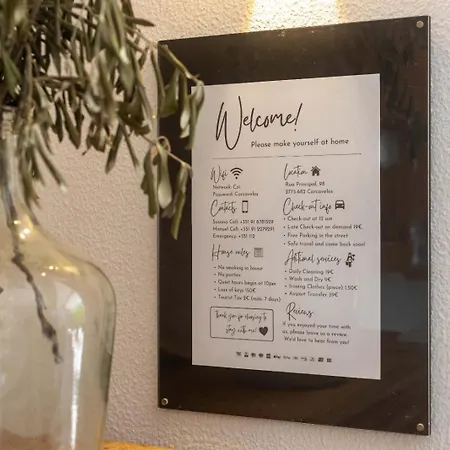 Welcome!
Please make yourself at home
Wifi
Network: Csi
Password: Carcavelos
Contacts
Susana Cell: +351 91 6781529
Manuel Cell: +351 91 2279291
Emergency: +351 112
House rules
• No smoking in house
• No parties
• Quiet hours begin at 10pm
• Loss of keys 150€
• Tourist Tax 2€ (max. 7 days)
Thank you for choosing to
stay with me!
Location
Rua Principal, 98
2775-682 Carcavelos
Check-out info
• Check-out at 12 am
• Late Check-out on demand 19€
• Free Parking in the street
• Safe travel and come back soon!
Aditional services
• Daily Cleaning 19€
• Wash and Dry 9€
• Ironing Clothes (piece) 1.50€
• Airport Transfer 39€
Reviews
If you enjoyed your time with
us, please leave us a review.
We'd love to hear from you!